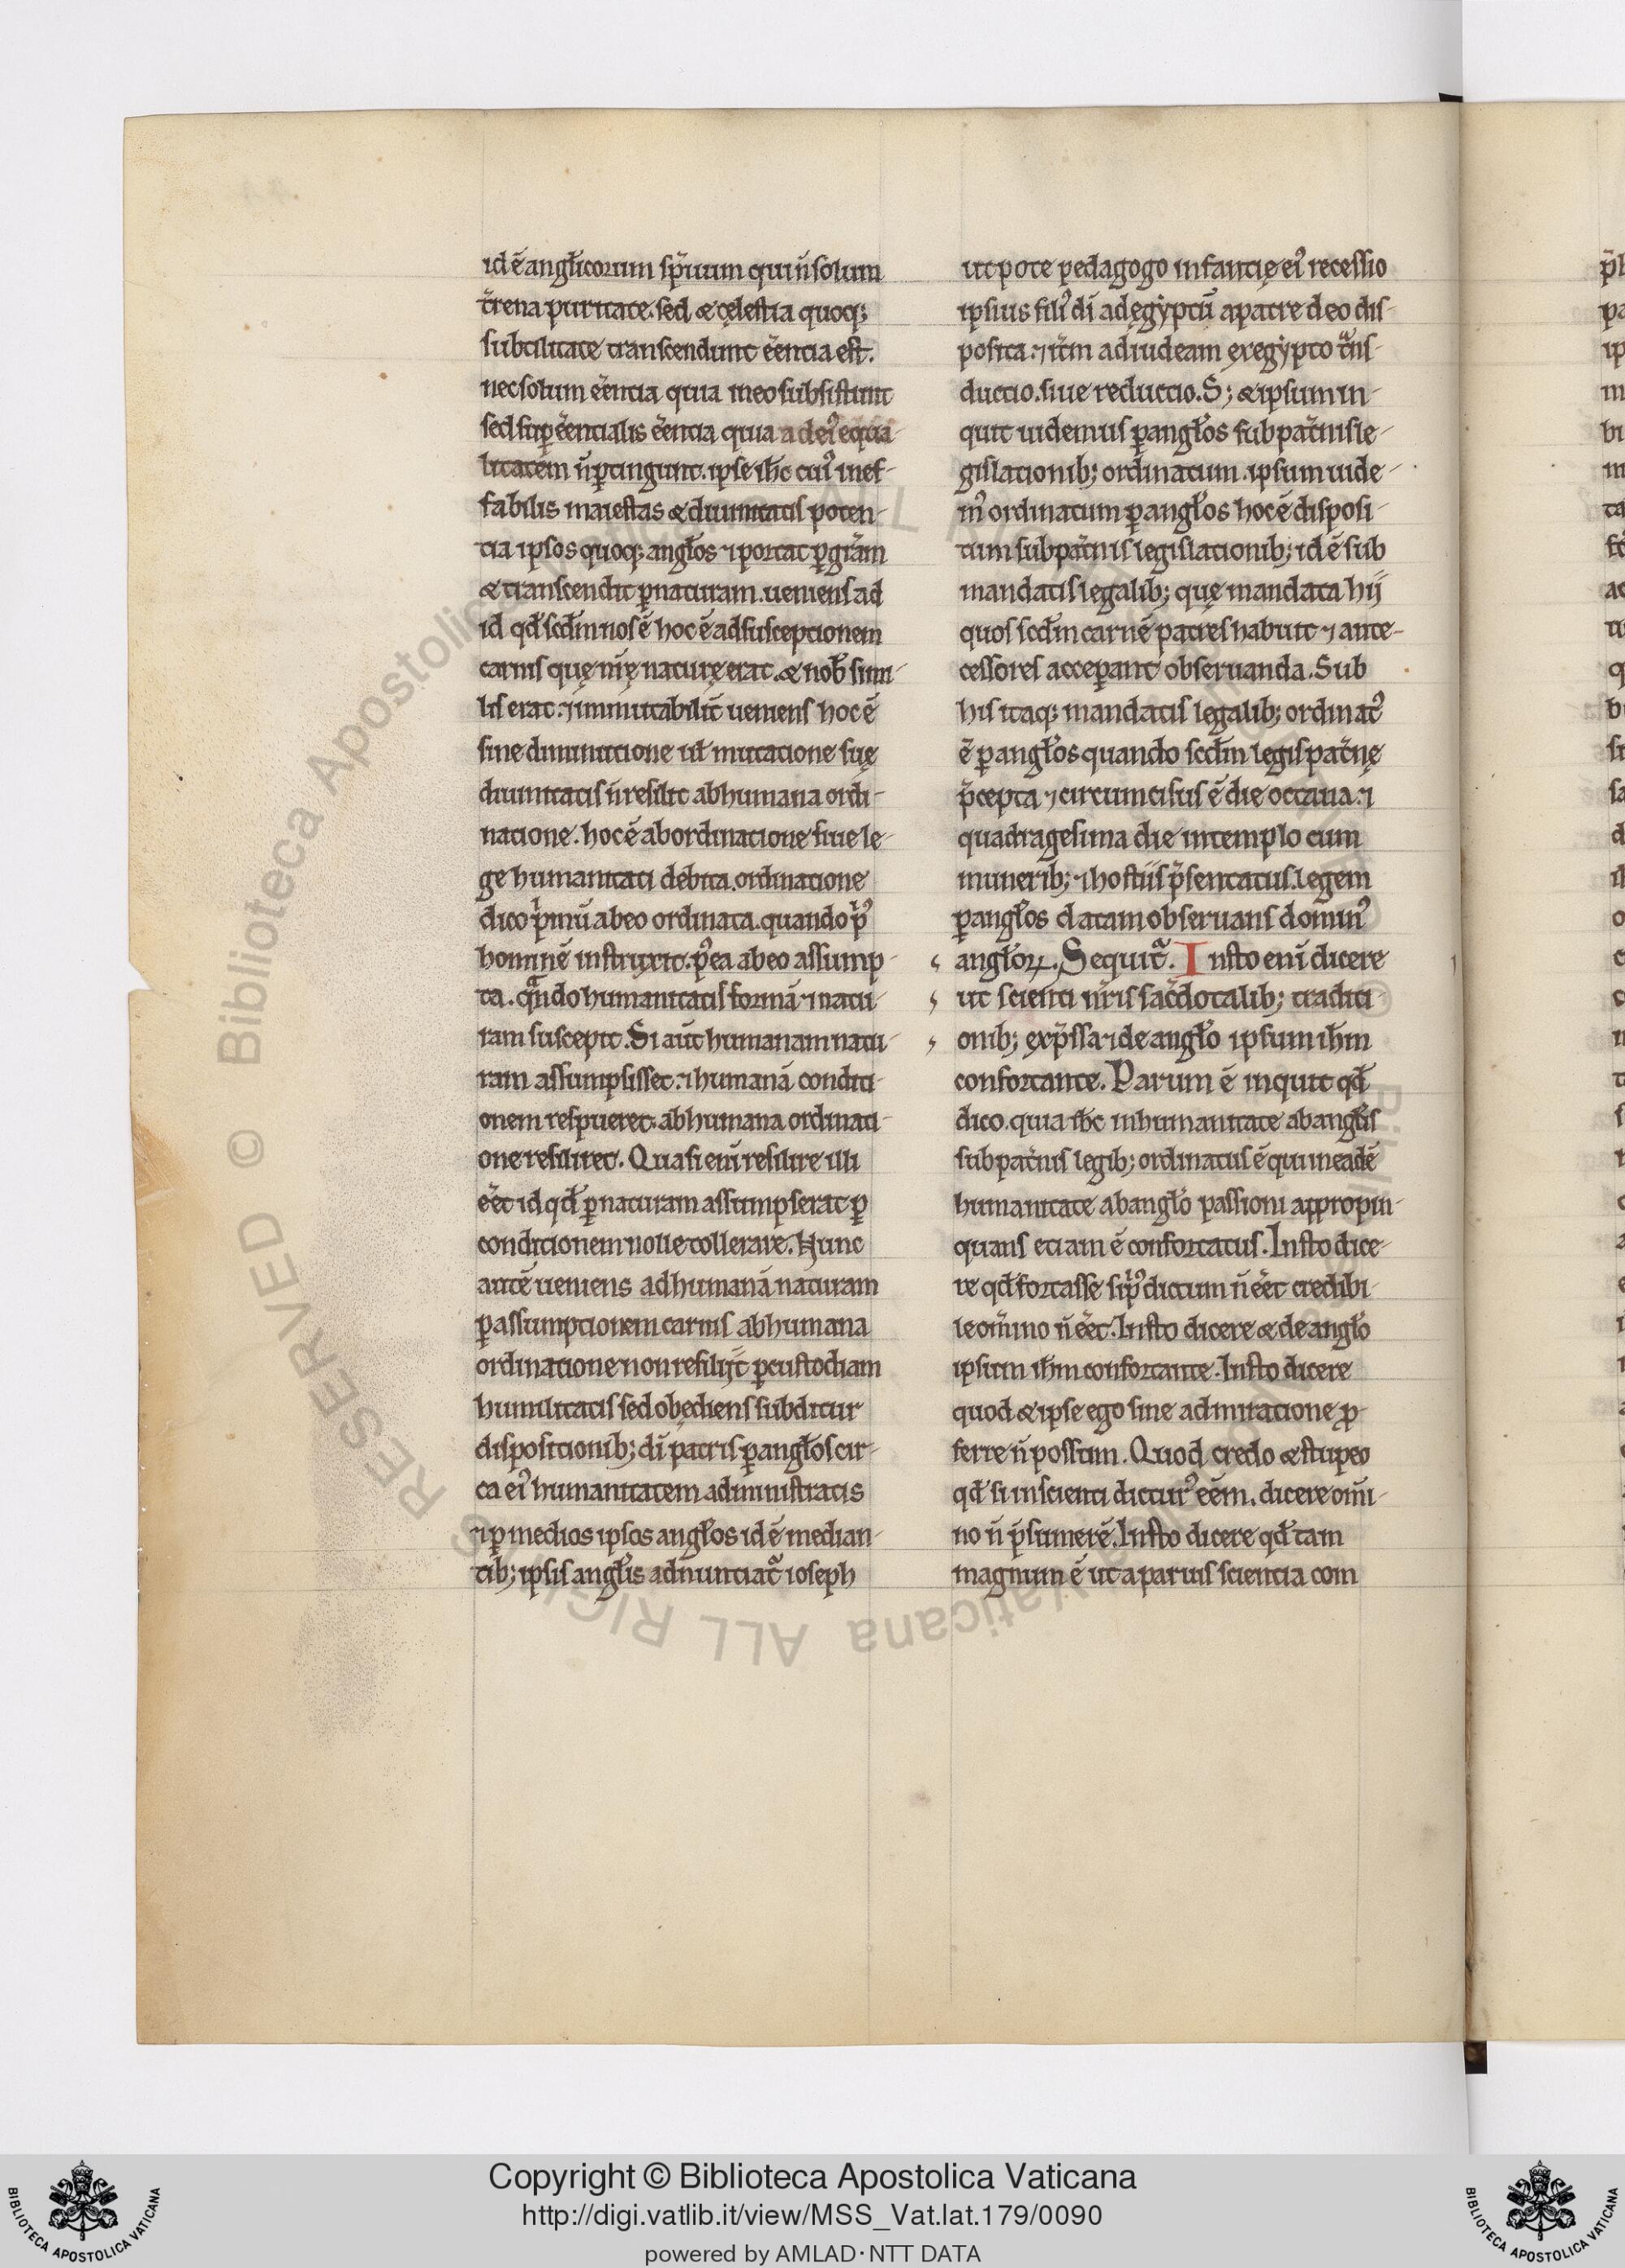 id ē angl̄icorum sp̄rituum qui n̄ solum
t̄rena puritate. sed & cęlestia quoq;
subtilitate transcendunt ēēntia est.
nec solum ēēntia qua in eo subsistunt
sed sup̱ēēntialis ēēntia quia ad ei᷒ equa-
litatem n̄ ꝑtingunt. ipse ih̄c cui᷒ inef-
fabilis maiestas & diuinitatis poten-
tia ipsos quoq; angl̄os ⁊ portat ꝑ gr̄am
& transcendit ꝑ naturam. ueniens ad
id qd̄ scd̄m nos ē hoc ē ad susceptionem
carnis quę nr̄ę naturę erat. & nob̄ simi-
lis erat. ⁊ inmutabilit̄ ueniens hoc ē
sine diminutione ul̄ mutatione suę
diuinitatis n̄ resilit ab humana ordi-
natione. hoc ē ab ordinatione siue le-
ge humanitati debita. ordinatione
dico p̄mū ab eo ordinata. quando p᷒
hominē instruxit. p᷒ea ab eo assump-
ta. qn̄do humanitatis formā ⁊ natu-
ram suscepit. Si aut̄ humanam natu-
ram assumpsisset. ⁊ humanā conditi-
onem respueret. ab humana ordinati-
one resiliret. Quasi enī resilire illi
ēēt id qd̄ ꝑ naturam assumpserat ꝑ
conditionem nolle tollerare. Hunc
autē ueniens ad humanā naturam
ꝑ assumptionem carnis ab humana
ordinatione non resilijt ꝑ custodiam
humilitatis sed obędiens subditur
dispositionib; dī patris ꝑ angl̄os cir-
ca ei᷒ humanitatem administratis
⁊ ꝑ medios ipsos angl̄os id ē median-
tib; ipsis angl̄is adnuntiat᷑ ioseph
utpote pedagogo infantię ei᷒ recessio
ipsius filii dī ad ęgyptū a patre deo dis-
posita. ⁊ it̄m ad iudeam ex egypto t̄ns-
ductio. siue reductio. S; & ipsum in-
quit uidemus ꝑ angl̄os sub pat̄nis le-
gislationib; ordinatum. ipsum uide-
m᷒ ordinatum ꝑ angl̄os hoc ē disposi-
tum sub pat̄nis legislationib; id ē sub
mandatis legalib; quę mandata hij
quos scd̄m carnē patres habuit ⁊ ante-
cessores acceꝑant obseruanda. Sub
his itaq; mandatis legalib; ordinat᷒
ē ꝑ angl̄os quando scd̄m legis pat̄nę
p̄cepta ⁊ circumcisus ē die octaua. ⁊
quadragesima die in templo cum
munerib; ⁊ hostiis p̄sentatus. legem
ꝑ angl̄os datam obseruans domin᷒
angl̄oꝝ. Sequit᷑. Insto enī dicere
ut scienti nr̄is sac̄dotalib; traditi-
onib; exp̄ssa ⁊ de angl̄o ipsum ih̄m
confortante. Parum ē inquit qd̄
dico. quia ih̄c in humanitate ab angl̄is
sub pat̄nis legib; ordinatus ē qui in eadē
humanitate ab angl̄o passioni appropin-
quans etiam ē confortatus. Insto dice-
re qd̄ fortasse si p᷒ dictum n̄ ēēt credibi-
le om̄ino n̄ ēēt. Insto dicere & de angl̄o
ipsum ih̄m confortante. Insto dicere
quod & ipse ego sine admiratione ꝓ-
ferre n̄ possum. Quod credo & stupeo
qd̄ si inscienti dictur᷒ ēēm. dicere om̄i-
no n̄ p̄sumerē. Insto dicere qd̄ tam
magnum ē ut a paruis scientia com
Copyright © Biblioteca Apostolica Vaticana
http://digi.vatlib.it/view/MSS_Vat.lat.179/0090
powered by AMLAD·NTT DATA